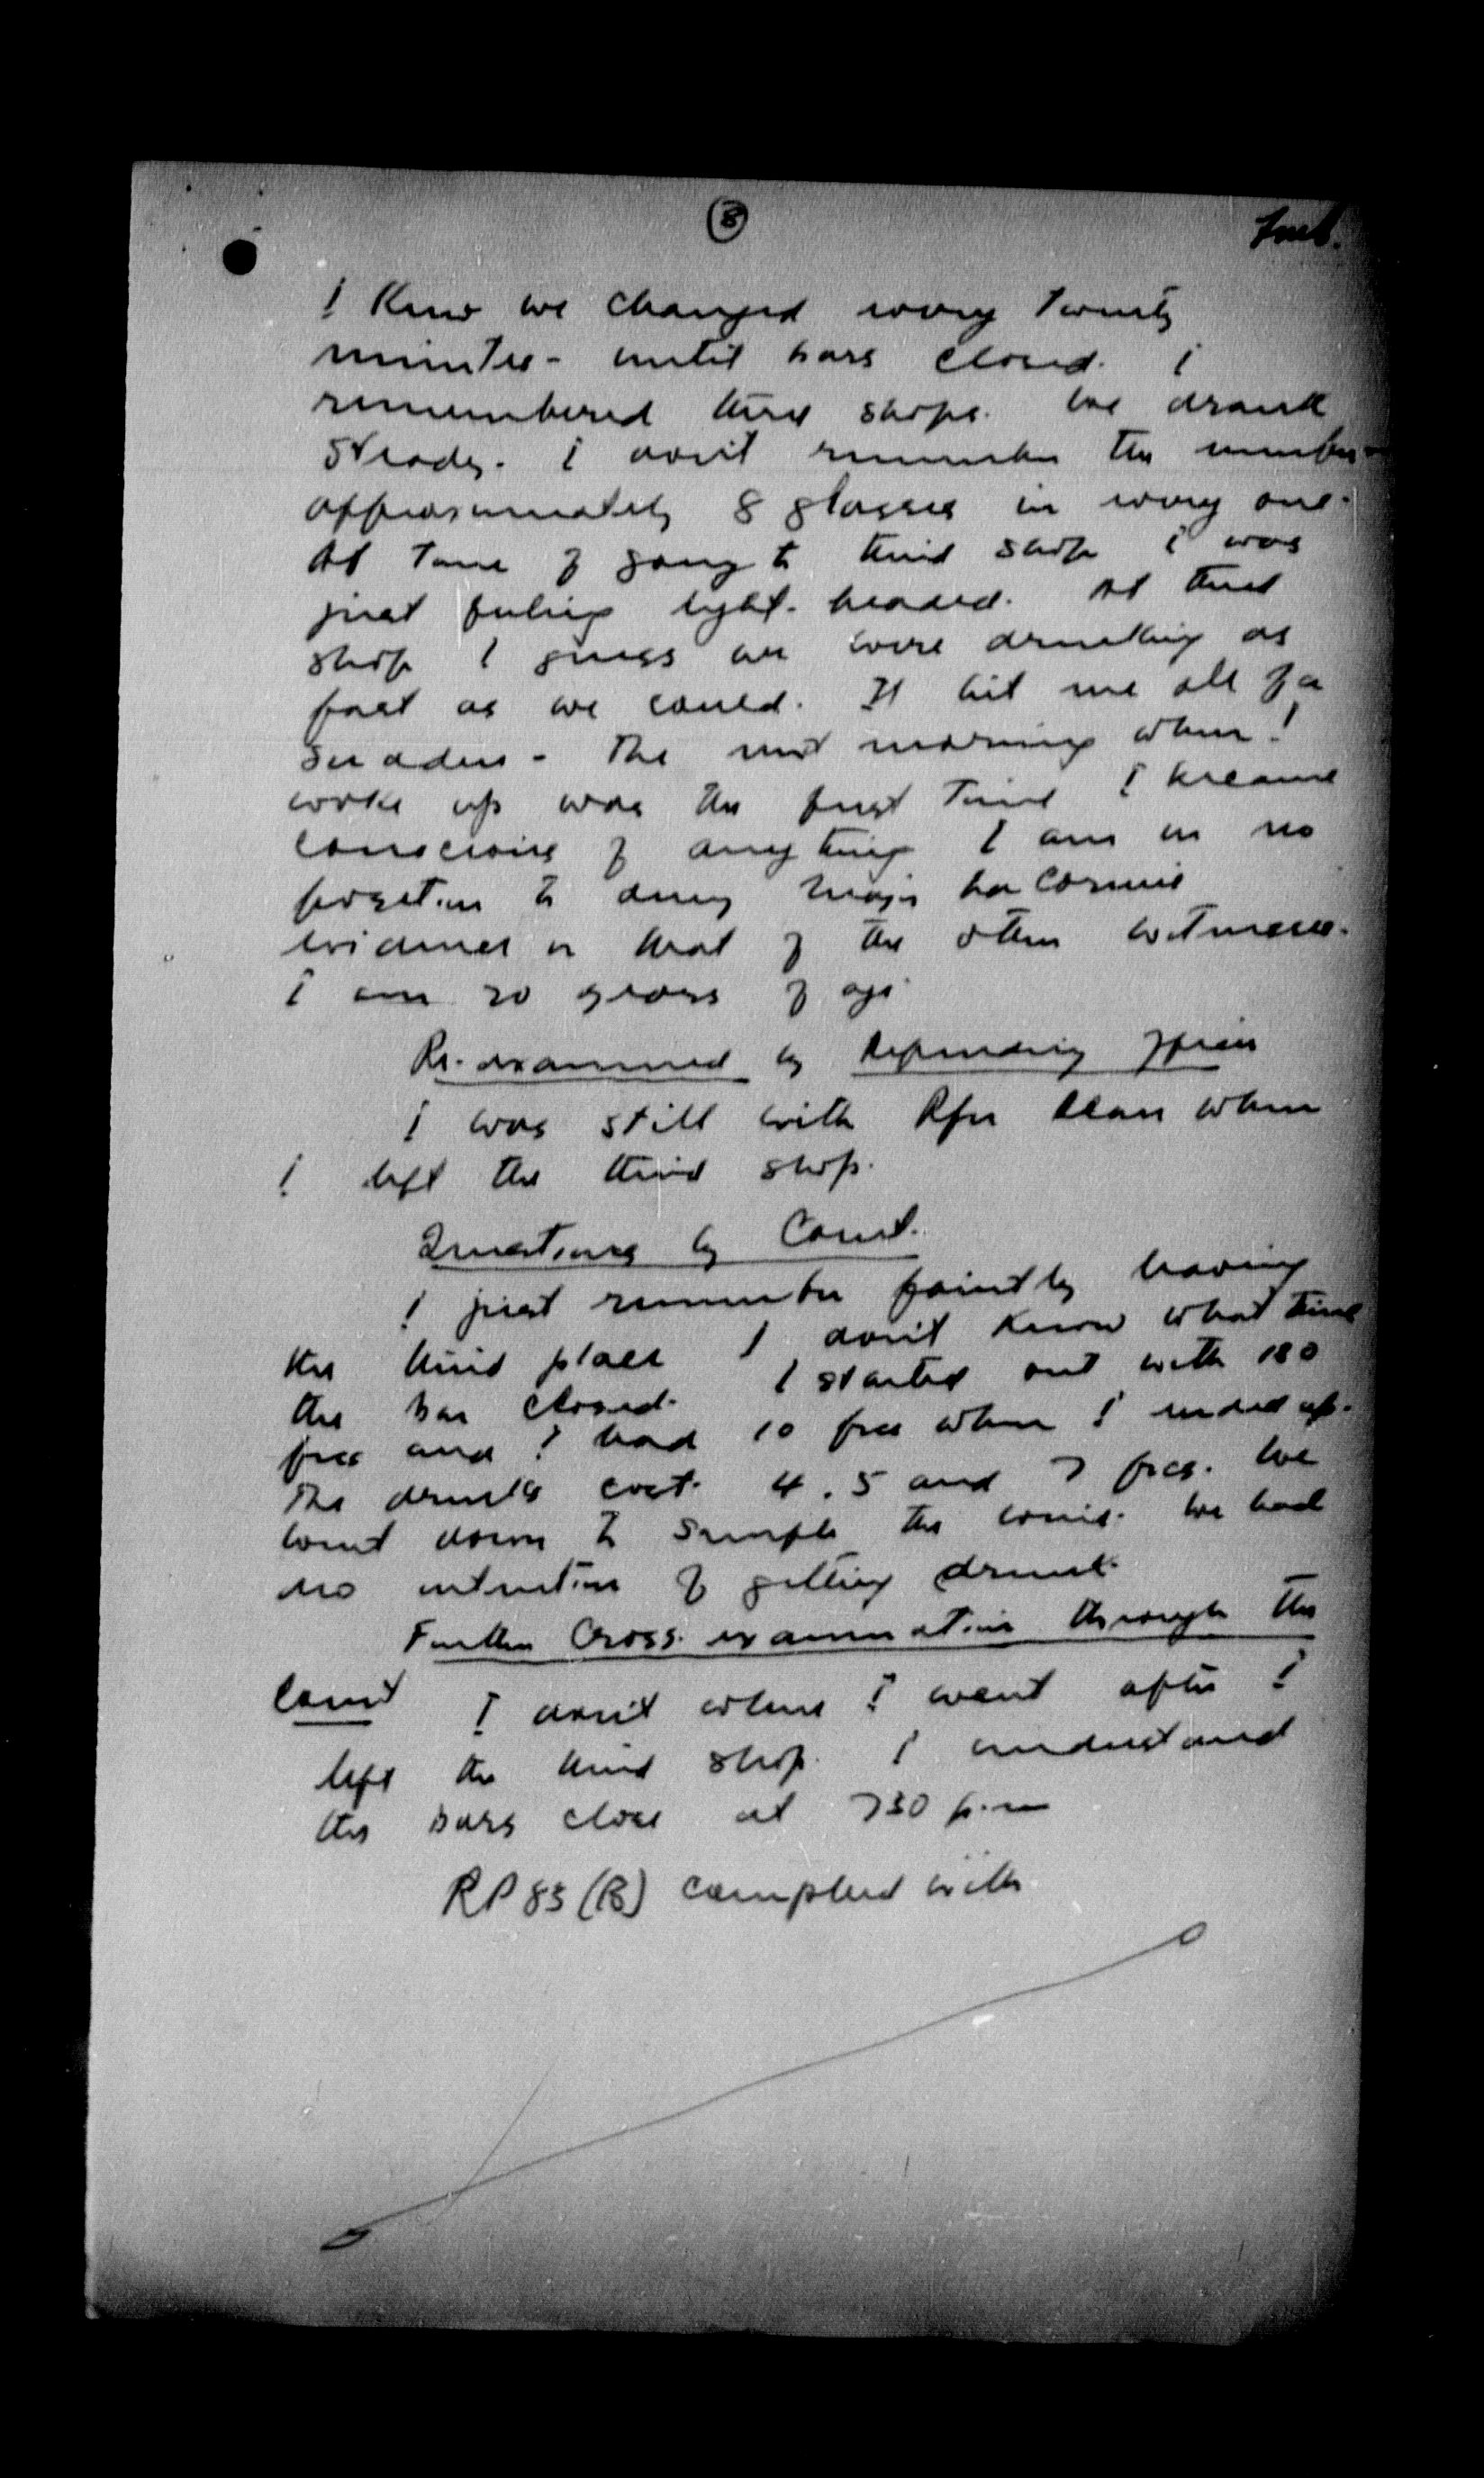 (8)
I Know we changed every Twenty
minutes - until bars closed. I
remembered three shops. We drank
steady. I don't remember the number -
approximately 8 glasses in every one.
At Time of going to third shop I was
just feeling light-headed. At third
shop I guess we were drinking as
fast as we could. It hit me all of a
sudden - The next morning when I
woke up was the first Time I became
conscious of anything I am in no
position to deny Major
evidence or that of the other witnesses.
I am 20 years of age.
Re-examined by Defending Officer
I was still with Rfn when
I left the third shop.
Questions by Court.
I just remember faintly leaving
the third place I don't know what time
the bar closed. I started out with 180
frcs and I had 10 frcs when I ended up.
The drinks cost 4. 5 and 7 frcs. We
went down to sample the wine. We had
no intention of getting drunk.
Further Cross-examination through the
Court I don't where I went after I
left the third shop. I understand
the bars close at 730 p.m
RP 83 (B) complied with